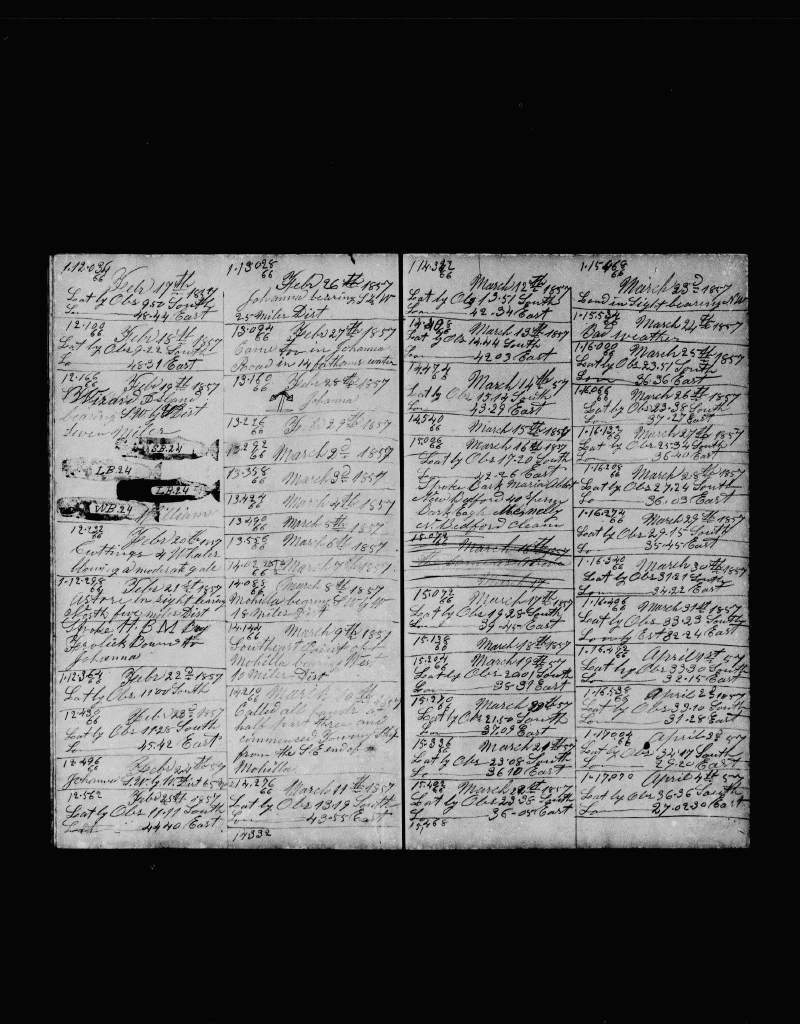 1.12.034
66
Feb 17th 1857
Lat by Obs 9.50 South
Lon 48.44 East
12.100
66
Feb 18th 1857
Lat by Obs 9.22 South
Lo 48.31 East
12.166
66
Feb 19th 1857
Wizard Island
bearing S W by W Dist
Seven Miles
S.B. 24
L.B. 24
L.B. 24
W.B. 24
William
12.232
66
Feb 20th 1857
Cuttings 4 Whales
blowing a moderate gale
1.12.298
66
Feb 21st 1857
in sight bearing
North five miles Dist
Spoke H B M Brig
Bound to
Johanna
1.12.364
66
Feb 22d 1857
Lat by Obs 11.00 South
12.430
66
Feb 23d 1857
Lat by Obs 11.28 South
Lo 45.42 East
12.496
66
Feb 24th 57
Johanna S.W by W Dist
12.562
Feb 25th 1857
Lat by Obs 11.11 South
Lon 44.40 East
1.13.028
66
Feb 26th 1857
Johanna bearing S W
25 Miles Dist
13.094
66
Feb 27th 1857
Came too in Johanna
Road in 14 fathoms water
13.160
66
Feb 28th 1857
Johanna
13.226
66
Feb 29th 1857
13.292
66
March 2d 1857
13.358
66
March 3d 1857
13.424
66
March 4th 1857
13.490
66
March 5th 1857
13.556
66
March 6th 1857
14.02
March 7th 1857
14.088
66
March 8th 1857
Mohilla bearing S W by W
18 Miles Dist
14.144
66
March 9th 1857
Southeast Point of
Mohilla bearing West
10 Miles Dist
14.210
66
March 10th 1857
Called all hands at
half past three and
commenced
from the S E end of
Mohilla
14.276
March 11th 1857
Lat by Obs 13.19 South
Lon 43.55 East
14332
114.342
66
March 12th 1857
Lat by Obs 13.51 South
Lon 42.34 East
14.408
66
March 13th 1857
Lat by Obs 14.44 South
Lon 42.03 East
14.474
66
March 14th 57
Lat by Obs 15.14 South
Lo 43.29 East
14.540
66
March 15th 1857
15.006
66
March 16th 1857
Lat by Obs 17.20 South
Lo 42.26 East
Spoke Bark Maria
New Bedford 40 Sperm
Bark Eagle
N. Bedford Clean
15.072
15.072
66
March 17th 1857
Lat by Obs 19.25 South
Lo 39.45 East
15.138
66
March 18th 1857
15.204
66
March 19th 57
Lat by Obs 20.01 South
Lo 38.31 East
15.270
66
March 20th 57
Lat by Obs 21.50 South
Lo 37.09 East
15.336
66
March 21st 57
Lat by Obs 23.05 South
Lo 36.10 East
15.402
66
March 22d 1857
Lat by Obs 23.36 South
Lo 36.05 East
15,468
1.15.468
66
March 23d 1857
Land in Sight bearing N W
1.15.534
66
March 24th 1857
Bad Weather
1.16.000
66
March 25th 1857
Lat by Obs 23.51 South
Lon 36.36 East
1.16.066
66
March 26th 1857
Lat by Obs 23.38 South
Lo 37.27 East
1.16.132
66
March 27th 1857
Lat by Obs 25.34 South
Lo 36.40 East
1.16.208
66
March 28th 1857
Lat by Obs 27.24 South
Lo 36.03 East
1.16.274
66
March 29th 1857
Lat by Obs 29.15 South
Lo 35.45 East
1.16.340
66
March 30th 1857
Lat by Obs 31.21 South
Lo 34.22 East
1.16.406
66
March 31st 1857
Lat by Obs 33.23 South
Lon by Est 32.24 East
1.16.472
66
April 1st 57
Lat by Obs 33.30 South
Lo 32.15 East
1.16.538
66
April 2d 57
Lat by Obs 33.10 South
Lo 31.25 East
1.17.004
66
April 3d 57
Lat by Obs 34.17 South
Lo 29.20 East
1.17.070
April 4th 57
Lat by Obs 36.36 South
Lon 27.02.30 East